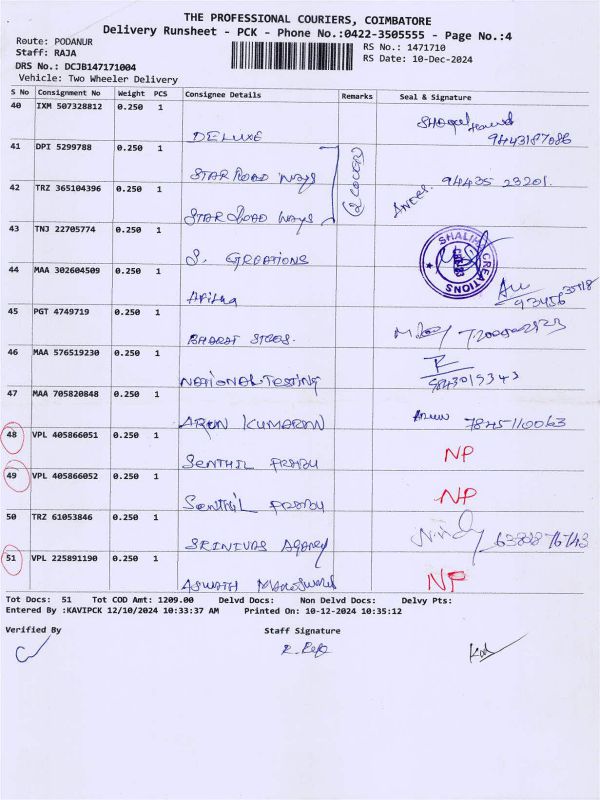 THE PROFESSIONAL COURIERS, COIMBATORE
Delivery Runsheet - PCK - Phone No.:0422-3505555 - Page No.:4
Route: PODANUR
RS No.: 1471710
Staff: RAJA
RS Date: 10-Dec-2024
DRS No.: DCJB147171004
Vehicle: Two Wheeler Delivery
S No Consignment No Weight PCS Consignee Details Remarks Seal & Signature
40 IXM 507328812 0.250 1
DELUXE 9443187086
41 DPI 5299788 0.250 1
STAR ROAD WAYS
42 TRZ 365104396 0.250 1 94435 23201.
STAR ROAD WAYS
43 TNJ 22705774 0.250 1
S. CREATIONS SHALINI CREATIONS
44 MAA 302604509 0.250 1
45 PGT 4749719 0.250 1
BHARAT STEELS.
46 MAA 576519230 0.250 1
NATIONAL TESTING 9843015343
47 MAA 705820848 0.250 1
ARUN KUMARAN 7845110063
48 VPL 405866051 0.250 1
SENTHIL PRABU NP
49 VPL 405866052 0.250 1
Senthil PRABU NP
50 TRZ 61053846 0.250 1
SRINIVAS Agency
51 VPL 225891190 0.250 1
ASWATH NP
Tot Docs: 51 Tot COD Amt: 1209.00 Delvd Docs: Non Delvd Docs: Delvy Pts:
Entered By :KAVIPCK 12/10/2024 10:33:37 AM Printed On: 10-12-2024 10:35:12
Verified By Staff Signature